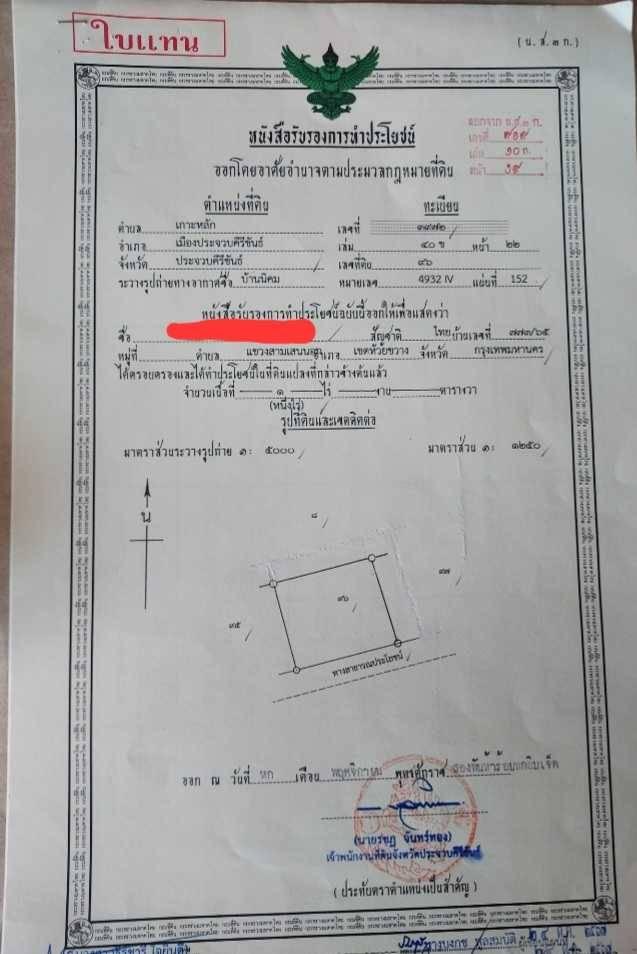 ใบแทน
( น. ส. ๓ ก. )
หนังสือรับรองการทำประโยชน์
ออกโดยอาศัยอำนาจตามประมวลกฎหมายที่ดิน
ตำแหน่งที่ดิน ทะเบียน
ตำบล เกาะหลัก เลขที่ ๓๙๗๒
อำเภอ เมืองประจวบคีรีขันธ์ เล่ม ๔๐ ข หน้า ๒๒
จังหวัด ประจวบคีรีขันธ์ เลขที่ดิน ๙๖
ระวางรูปถ่ายทางอากาศชื่อ บ้านนิคม หมายเลข 4932 IV แผ่นที่ 152
หนังสือรับรองการทำประโยชน์ฉบับนี้ออกให้เพื่อแสดงว่า
ชื่อ สัญชาติ ไทย บ้านเลขที่ ๗๗๗/๖๕
หมู่ที่ ตำบล แขวงสามเสนนอก อำเภอ เขตห้วยขวาง จังหวัด กรุงเทพมหานคร
ได้ครอบครองและได้ทำประโยชน์ในที่ดินแปลงที่กล่าวข้างต้นแล้ว
จำนวนเนื้อที่ ๑ ไร่ งาน ตารางวา
(หนึ่งไร่)
รูปที่ดินและเขตติดต่อ
มาตราส่วนระวางรูปถ่าย ๑: ๕๐๐๐ มาตราส่วน ๑: ๑๒๕๐
น
๘
๙๗
๙๖
๙๕
ทางสาธารณประโยชน์
ออก ณ วันที่ หก เดือน พฤศจิกายน พุทธศักราช
เจ้าพนักงานที่ดินจังหวัดประจวบคีรีขันธ์
( ประทับตราตำแหน่งเป็นสำคัญ )